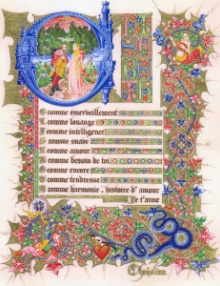 comme émerveillement
comme louange
comme intelligence
comme suave
comme amour
comme besoin de toi
comme encore
comme tendresse
comme harmonie, histoire d'amour
Je t'aime